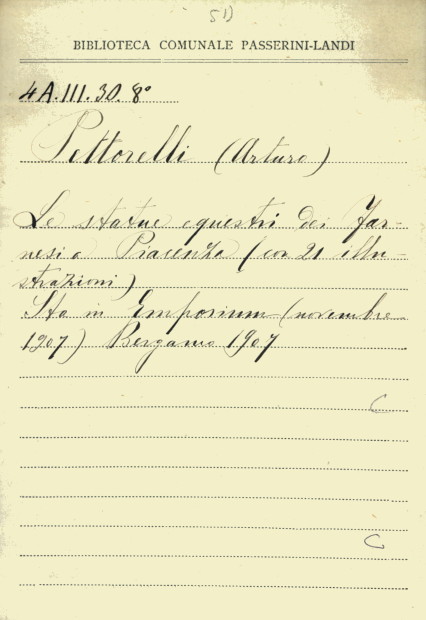 51)
BIBLIOTECA COMUNALE PASSERINI-LANDI
4A.III.30.8°
Pettorelli (Arturo)
Le statue equestri dei Far-
nesi a Piacenza (con 21 illu-
strazioni)
Sta in Emporium (novembre
1907) Bergamo 1907
C
C